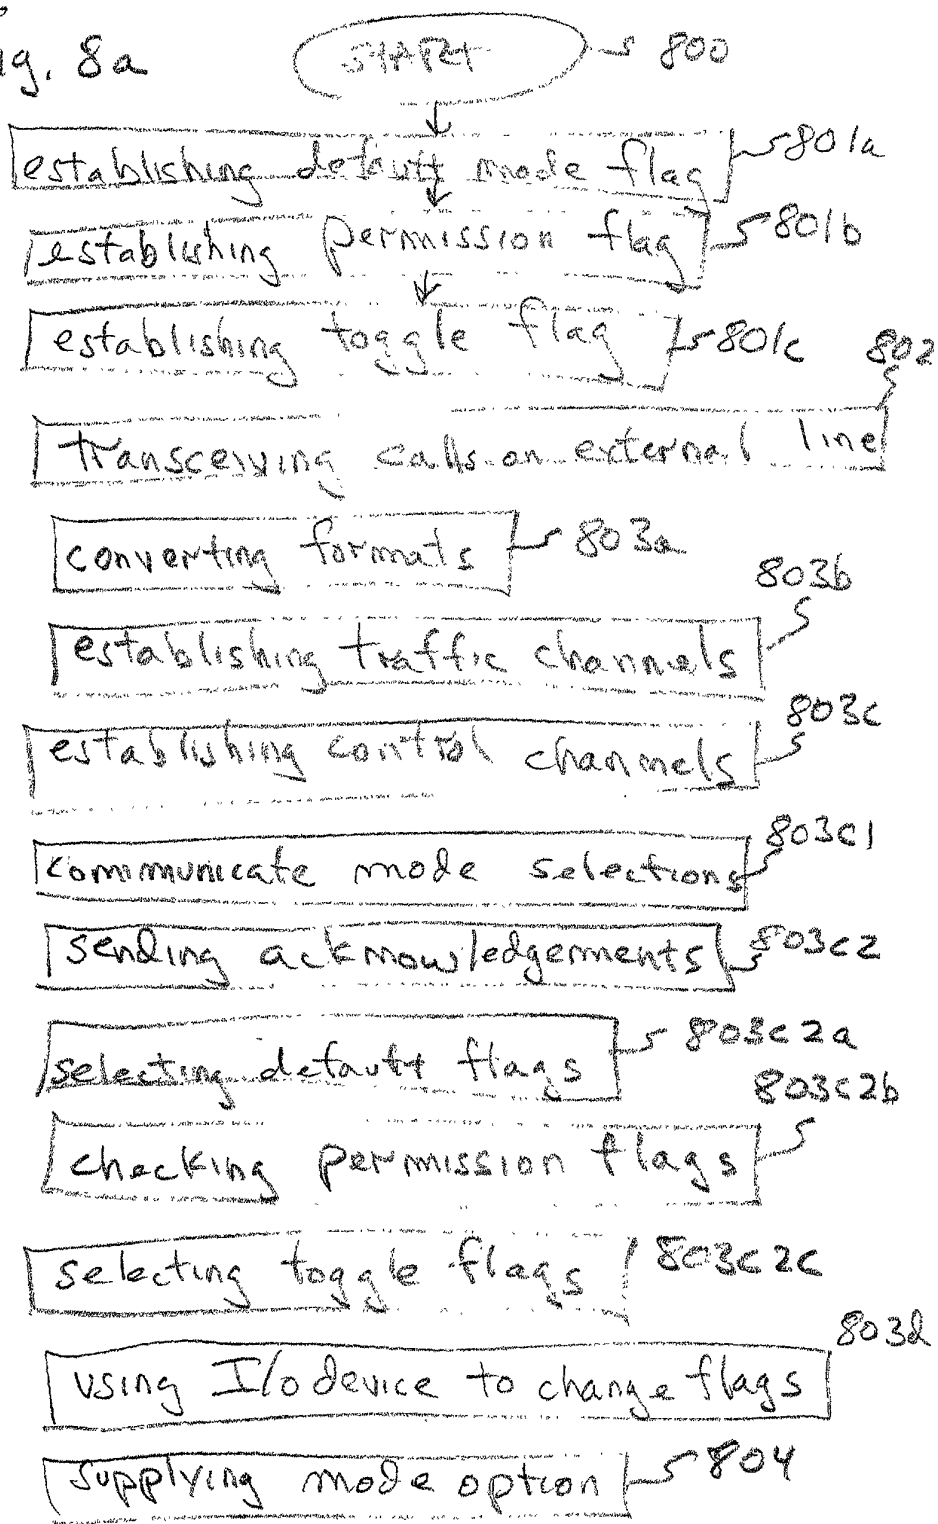 ig. 8a
START 800
establishing default mode flag 801a
establishing permission flag 801b
establishing toggle flag 801c
802
transceiving calls on external line
converting formats 803a
803b
establishing traffic channels
803c
establishing control channels
803c1
communicate mode selections
sending acknowledgements 803c2
803c2a
selecting default flags
803c2b
checking permission flags
selecting toggle flags 803c2c
803d
using I/O device to change flags
supplying mode option 804